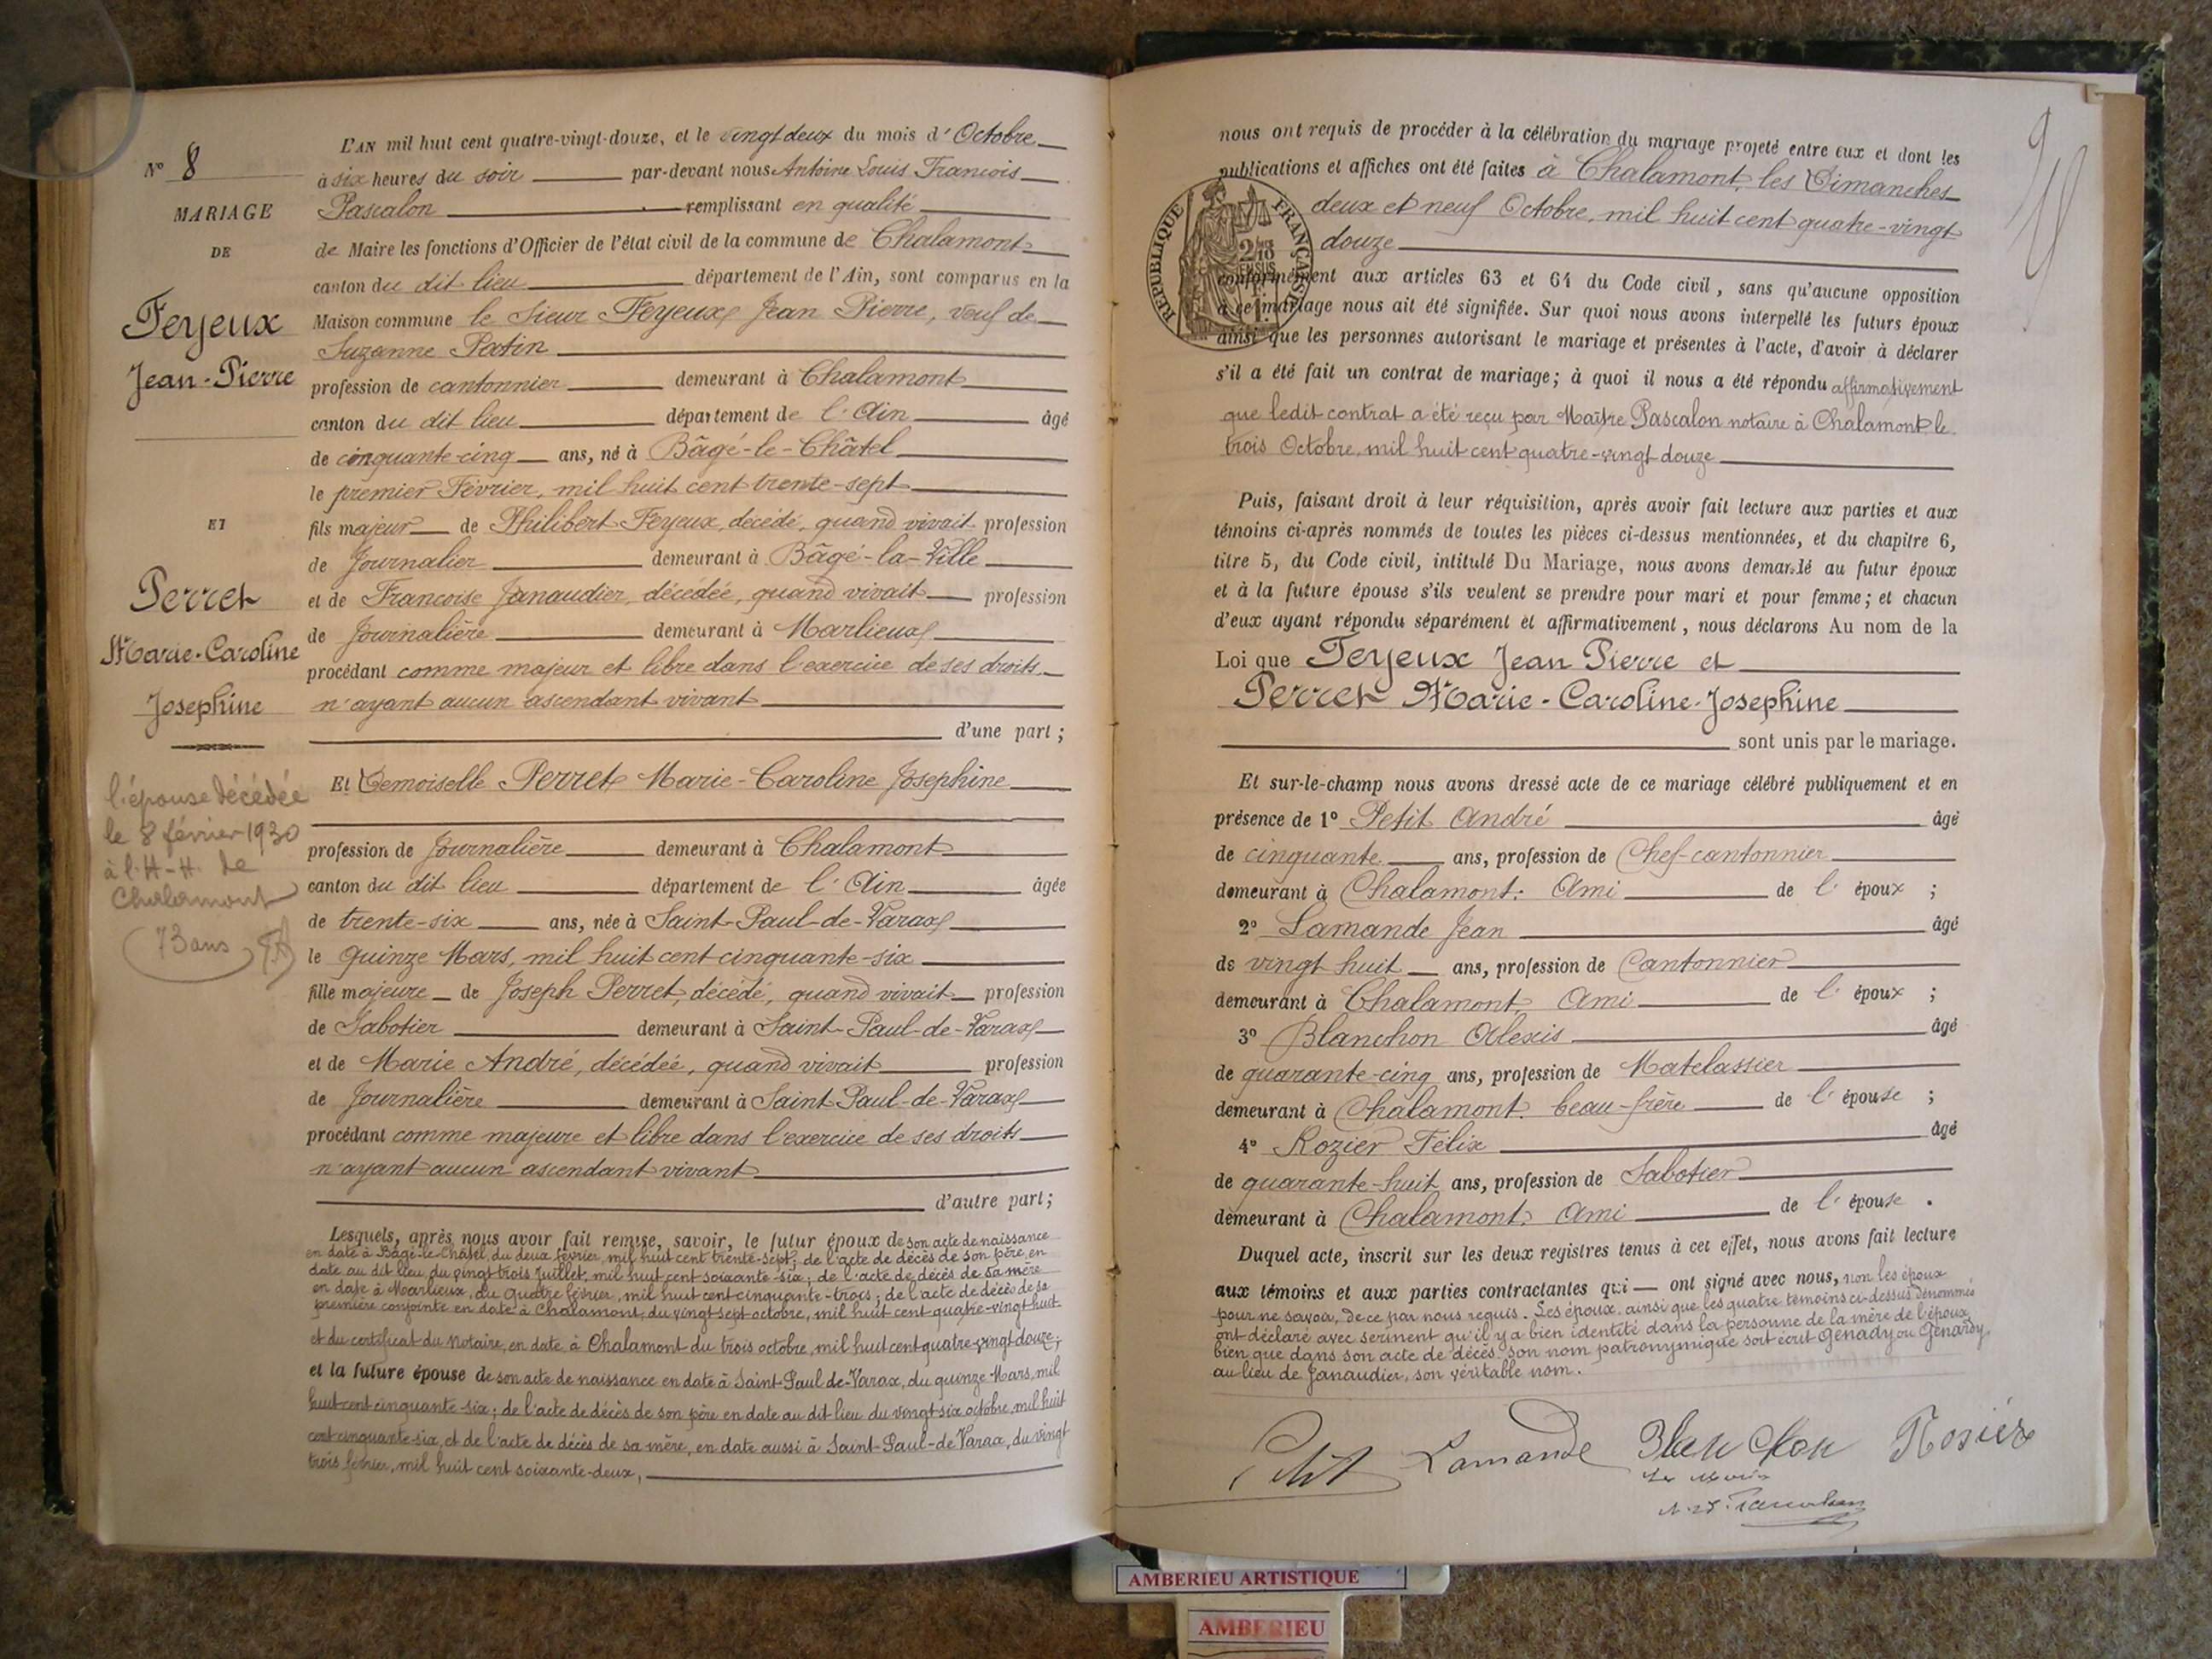 N° 8
MARIAGE
DE
Feyeux
Jean-Pierre
ET
Perret
Marie-Caroline
Josephine
l'épouse décédée
le 8 février 1930
à l'H-H. de
Chalamont
73 ans
L'AN mil huit cent quatre-vingt-douze, et le vingt deux du mois d'Octobre
à six heures du soir par-devant nous Antoine Louis François
Pascalon remplissant en qualité
de Maire les fonctions d'Officier de l'état civil de la commune de Chalamont
canton du dit lieu département de l'Ain, sont comparus en la
Maison commune le Sieur Feyeux Jean Pierre, veuf de
Suzanne Patin
profession de cantonnier demeurant à Chalamont
canton du dit lieu département de l'Ain âgé
de cinquante-cinq ans, né à Bâgé-le-Châtel
le premier Février, mil huit cent trente-sept
fils majeur de Philibert Feyeux, décédé, quand vivait profession
de Journalier demeurant à Bâgé-la-Ville
et de Francoise Janaudier, décédée, quand vivait profession
de Journalière demeurant à Marlieux
procédant comme majeur et libre dans l'exercice de ses droits
n'ayant aucun ascendant vivant
d'une part ;
Et Demoiselle Perret Marie-Caroline Josephine
profession de Journalière demeurant à Chalamont
canton du dit lieu département de l'Ain âgée
de trente-six ans, née à Saint-Paul-de-Varax
le Quinze Mars, mil huit cent cinquante-six
fille majeure de Joseph Perret, décédé, quand vivait profession
de Sabotier demeurant à Saint-Paul-de-Varax
et de Marie André, décédée, quand vivait profession
de Journalière demeurant à Saint-Paul-de-Varax
procédant comme majeure et libre dans l'exercice de ses droits
n'ayant aucun ascendant vivant
d'autre part ;
Lesquels, après nous avoir fait remise, savoir, le futur époux de son acte de naissance
en date à Bâgé-le-Châtel, du deux février, mil huit cent trente-sept ; de l'acte de décès de son père, en
date au dit lieu du vingt trois Juillet, mil huit cent soixante-six ; de l'acte de décès de sa mère
en date à Marlieux, du quatre février, mil huit cent cinquante-trois ; de l'acte de décès de sa
première conjointe en date à Chalamont, du vingt sept octobre, mil huit cent quatre-vingt huit
et du certificat du Notaire, en date à Chalamont du trois octobre, mil huit cent quatre-vingt douze ;
et la future épouse de son acte de naissance en date à Saint-Paul de-Varax, du quinze Mars, mil
huit cent cinquante-six ; de l'acte de décès de son père en date au dit lieu du vingt-six octobre, mil huit
cent cinquante-six, et de l'acte de décès de sa mère, en date aussi à Saint-Paul-de Varax, du vingt
trois février, mil huit cent soixante-deux,
nous ont requis de procéder à la célébration du mariage projeté entre eux et dont les
publications et affiches ont été faites à Chalamont, les Dimanches
deux et neuf Octobre, mil huit cent quatre-vingt
douze
REPUBLIQUE FRANÇAISE
conformément aux articles 63 et 64 du Code civil, sans qu'aucune opposition
à ce mariage nous ait été signifiée. Sur quoi nous avons interpellé les futurs époux
ainsi que les personnes autorisant le mariage et présentes à l'acte, d'avoir à déclarer
s'il a été fait un contrat de mariage ; à quoi il nous a été répondu affirmativement
que ledit contrat a été reçu par Maître Pascalon notaire à Chalamont le
trois Octobre, mil huit cent quatre-vingt douze
Puis, faisant droit à leur réquisition, après avoir fait lecture aux parties et aux
témoins ci-après nommés de toutes les pièces ci-dessus mentionnées, et du chapitre 6,
titre 5, du Code civil, intitulé Du Mariage, nous avons demandé au futur époux
et à la future épouse s'ils veulent se prendre pour mari et pour femme ; et chacun
d'eux ayant répondu séparément et affirmativement, nous déclarons Au nom de la
Loi que Feyeux Jean Pierre et
Perret Marie-Caroline-Josephine
sont unis par le mariage.
Et sur-le-champ nous avons dressé acte de ce mariage célébré publiquement et en
présence de 1° Petit André âgé
de cinquante ans, profession de Chef-cantonnier
demeurant à Chalamont. Ami de l'époux ;
2° Lamande Jean âgé
de vingt huit ans, profession de Cantonnier
demeurant à Chalamont Ami de l'époux ;
3° Blanchon Alexis âgé
de quarante-cinq ans, profession de Matelassier
demeurant à Chalamont. beau-frère de l'épouse ;
4° Rozier Félix âgé
de quarante-huit ans, profession de Sabotier
demeurant à Chalamont. Ami de l'épouse.
Duquel acte, inscrit sur les deux registres tenus à cet effet, nous avons fait lecture
aux témoins et aux parties contractantes qui ont signé avec nous, non les époux
pour ne savoir, de ce par nous requis. Les époux, ainsi que les quatre témoins ci-dessus dénommés
ont déclaré avec serment qu'il y a bien identité dans la personne de la mère de l'époux,
bien que dans son acte de décès, son nom patronymique soit écrit Genady ou Genardy,
au lieu de Janaudier, son véritable nom.
Petit Lamande Blanchon Rosier
Le Maire
AMBERIEU ARTISTIQUE
AMBERIEU